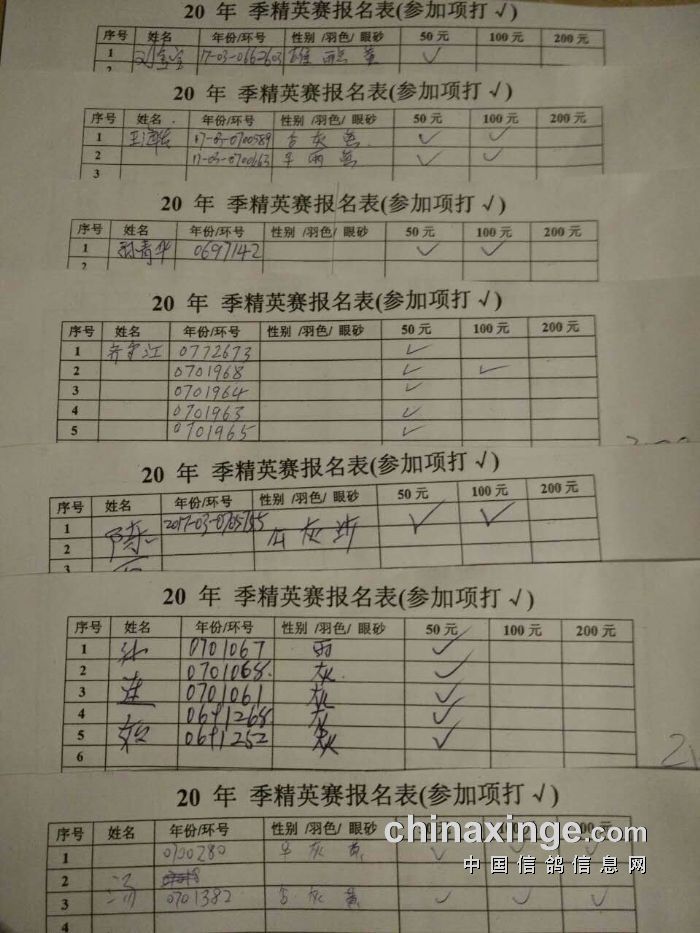 20 年 季精英赛报名表(参加项打 √)
序号 姓名 年份/环号 性别 /羽色/ 眼砂 50 元 100 元 200 元
1 17-03-0662603 雄 雨点 黄 ✓
2
20 年 季精英赛报名表(参加项打 √)
序号 姓名 年份/环号 性别 /羽色/ 眼砂 50 元 100 元 200 元
1 17-03-0700589 灰 ✓ ✓
2 17-03-0700663 雨 ✓ ✓
3
20 年 季精英赛报名表(参加项打 √)
序号 姓名 年份/环号 性别 /羽色/ 眼砂 50 元 100 元 200 元
1 孙青华 0697142 ✓ ✓
2
20 年 季精英赛报名表(参加项打 √)
序号 姓名 年份/环号 性别 /羽色/ 眼砂 50 元 100 元 200 元
1 江 0772673 ✓
2 0701968 ✓ ✓
3 0701964 ✓
4 0701963 ✓
5 0701965 ✓
20 年 季精英赛报名表(参加项打 √)
序号 姓名 年份/环号 性别 /羽色/ 眼砂 50 元 100 元 200 元
1 陈 灰 沙 ✓ ✓
2
3
20 年 季精英赛报名表(参加项打 √)
序号 姓名 年份/环号 性别 /羽色/ 眼砂 50 元 100 元 200 元
1 孙 0701067 雨 ✓
2 0701068 灰 ✓
3 连 0701061 灰 ✓
4 0691268 灰 ✓
5 0691252 灰 ✓
6
20 年 季精英赛报名表(参加项打 √)
序号 姓名 年份/环号 性别 /羽色/ 眼砂
1 0700280 灰 黄 ✓ ✓ ✓
2
3 0701382 灰 黄 ✓ ✓ ✓
4
chinaxinge.com
中国信鸽信息网